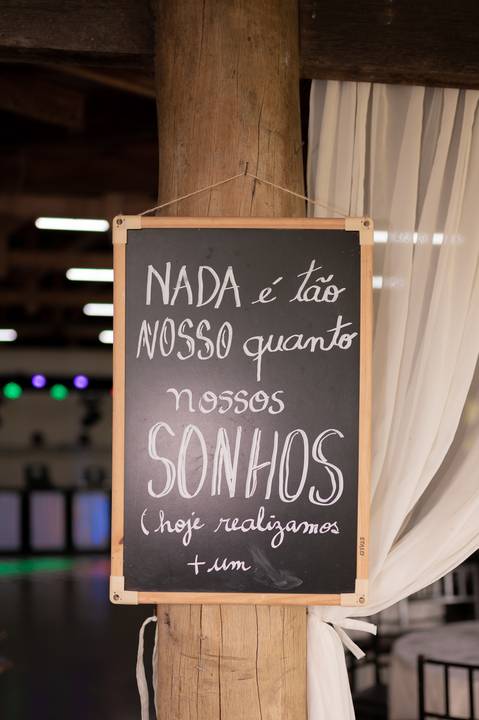 NADA é tão
NOSSO quanto
nossos
SONHOS
(hoje realizamos
+ um
STALO